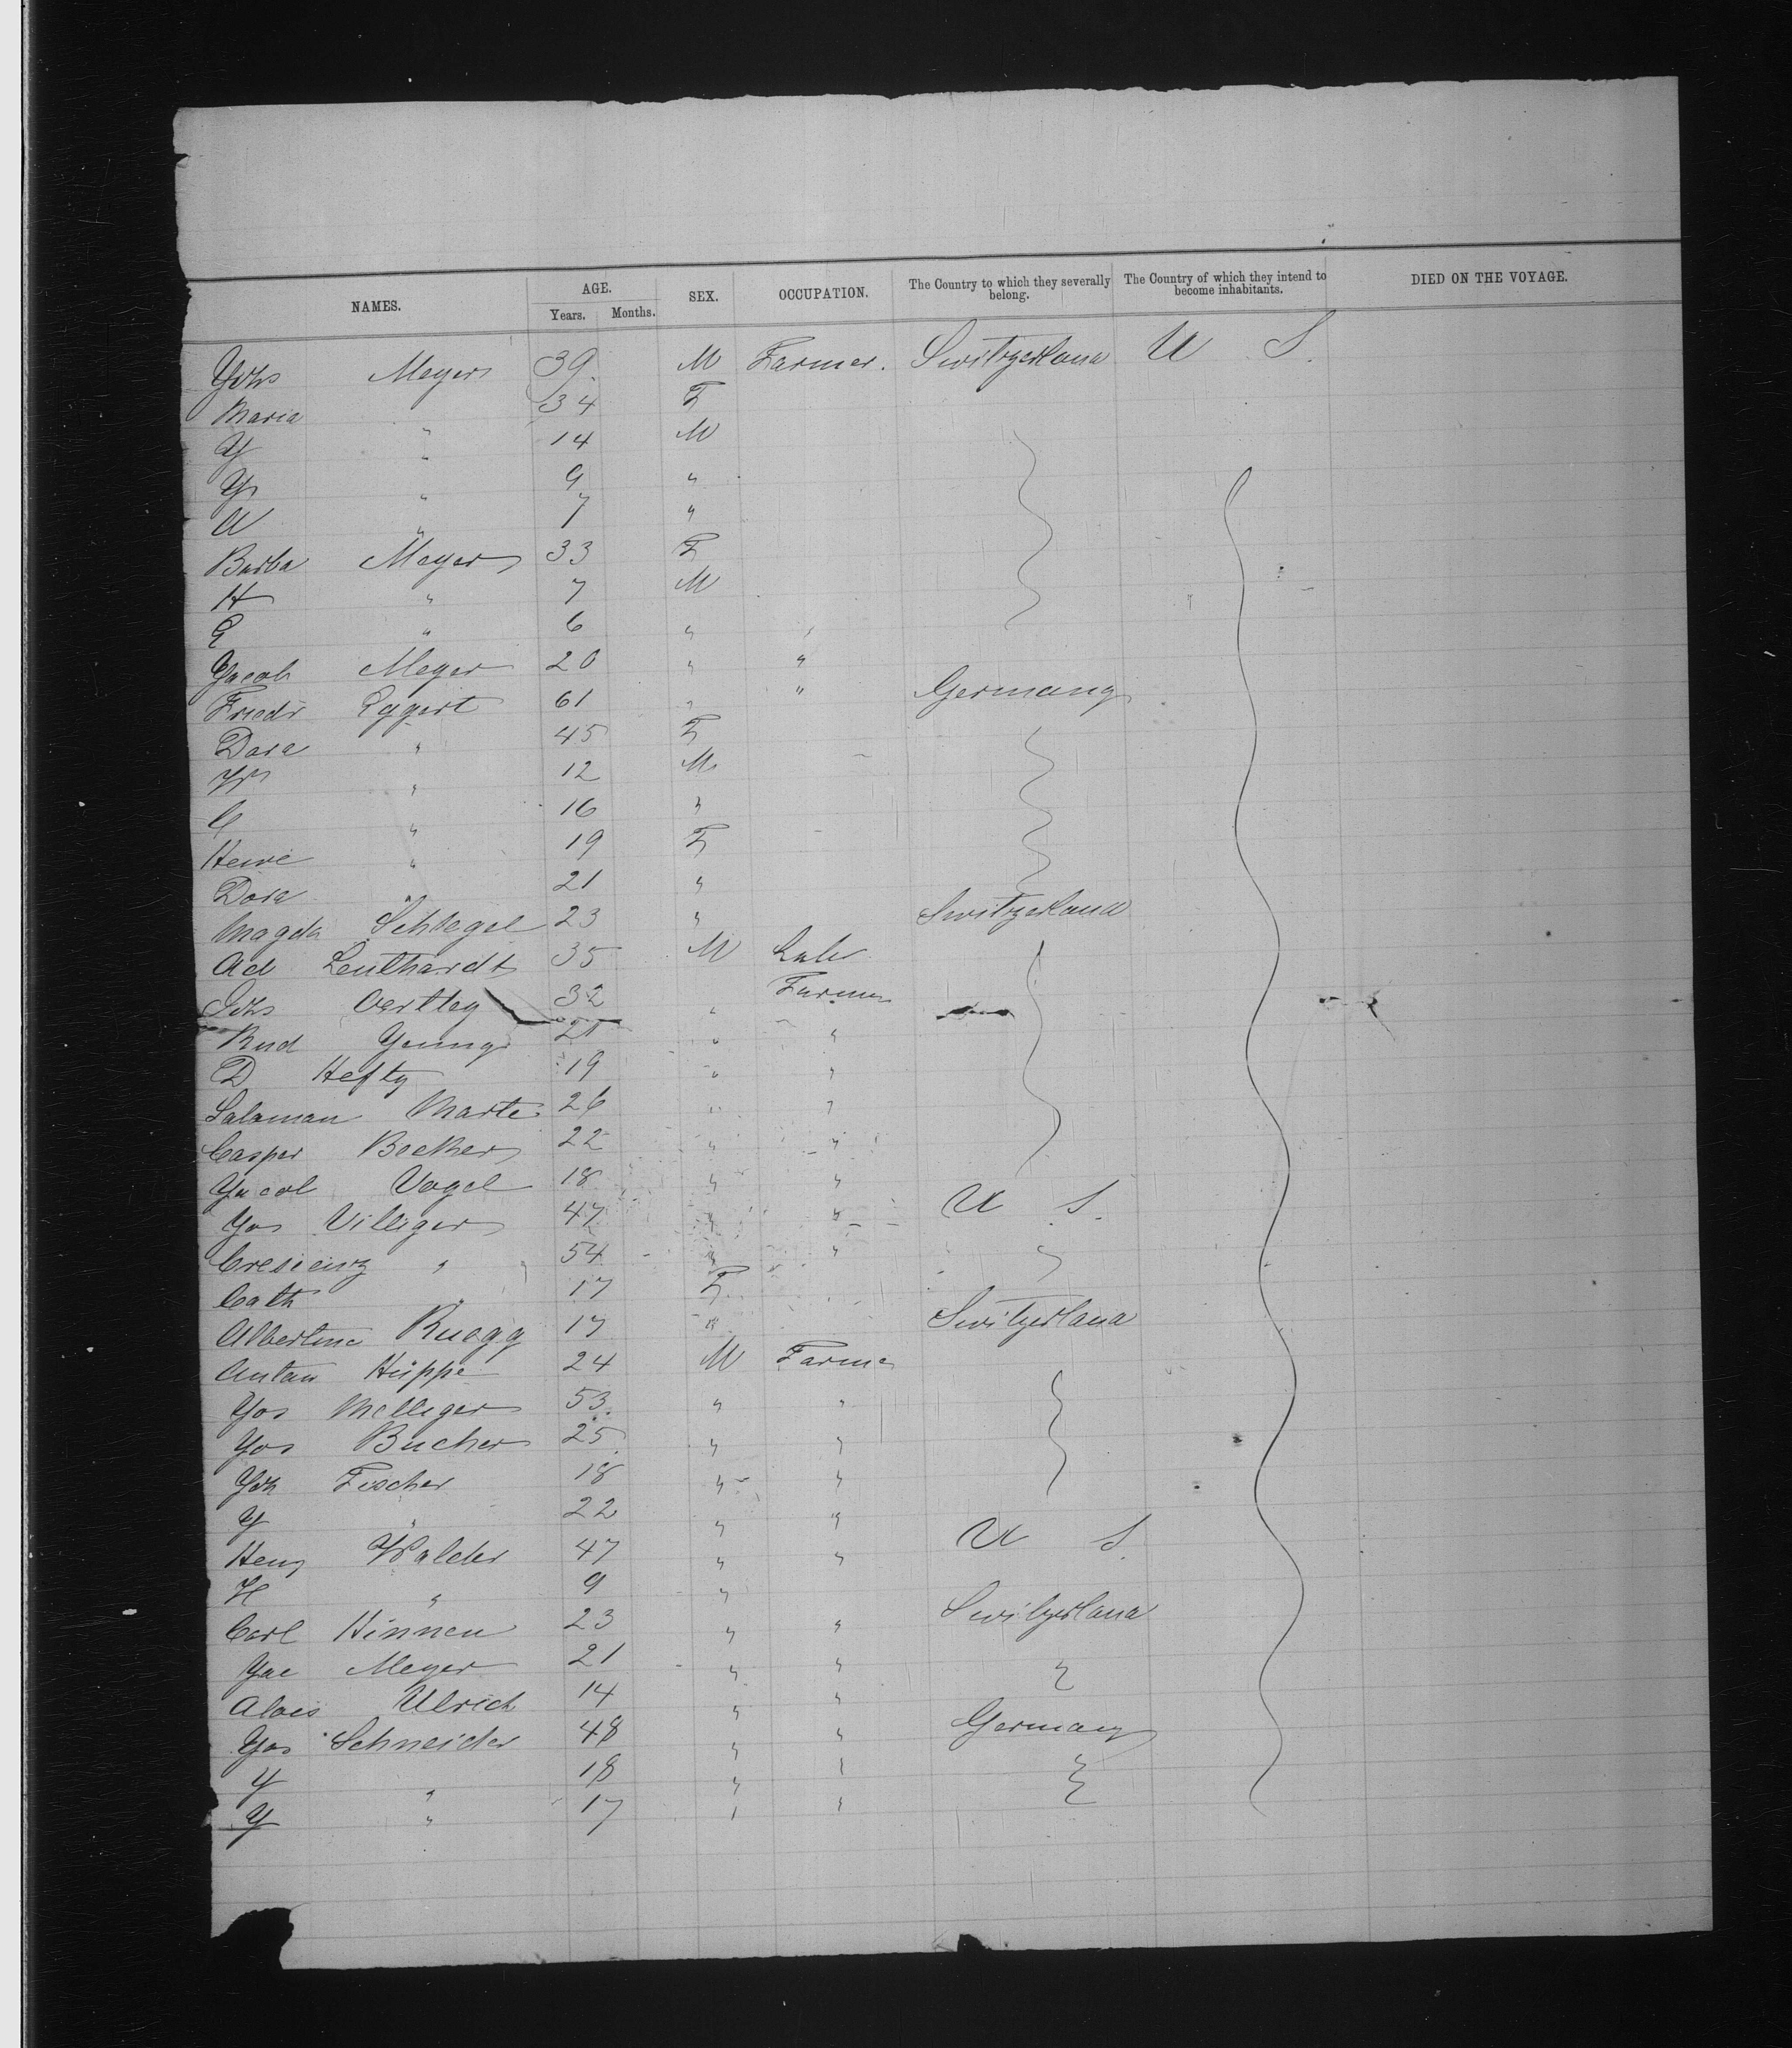 NAMES. AGE. Years. Months. SEX. OCCUPATION. The Country to which they severally belong. The Country of which they intend to become inhabitants. DIED ON THE VOYAGE.
Yohs Meyer 39. M Farmer. Switzerland U S.
Maria " 34 F
Y " 14 M
Ys " 9 "
A " 7 "
Barba Meyer 33 F
H " 7 M
E " 6 " "
Yacob Meyer 20 " "
Friedr Eggert 61 " " Germany
Dora " 45 F
W " 12 M
C " 16 "
Henre " 19 F
Dora " 21 "
Magda Schlegel 23 " Switzerland
Ad Leuthardt 35 M Lab
Johs Oertley 32 " Farmer
Rud Yenny 21 " "
D Hefty 19 " "
Salaman Marte 26 " "
Casper Becker 22 " "
Yacob Vogel 18 " "
Yos Villiger 47 " " U S.
Cresienz " 54 " " "
Cath " 17 F
Albertine Ruegg 17 " Switzerland
Antan Hüppe 24 M Farme
Yos Melliger 53. " "
Yos Bucher 25 " "
Yoh Fischer 18 " "
Y " 22 " "
Heny Walder 47 " " U S.
H " 9 "
Carl Hinnen 23 " " Switzerland
Yac Meyer 21 " "
Alois Ulrich 14 " "
Yos Schneider 48 " " Germany
Y " 18 " "
Y " 17 " "